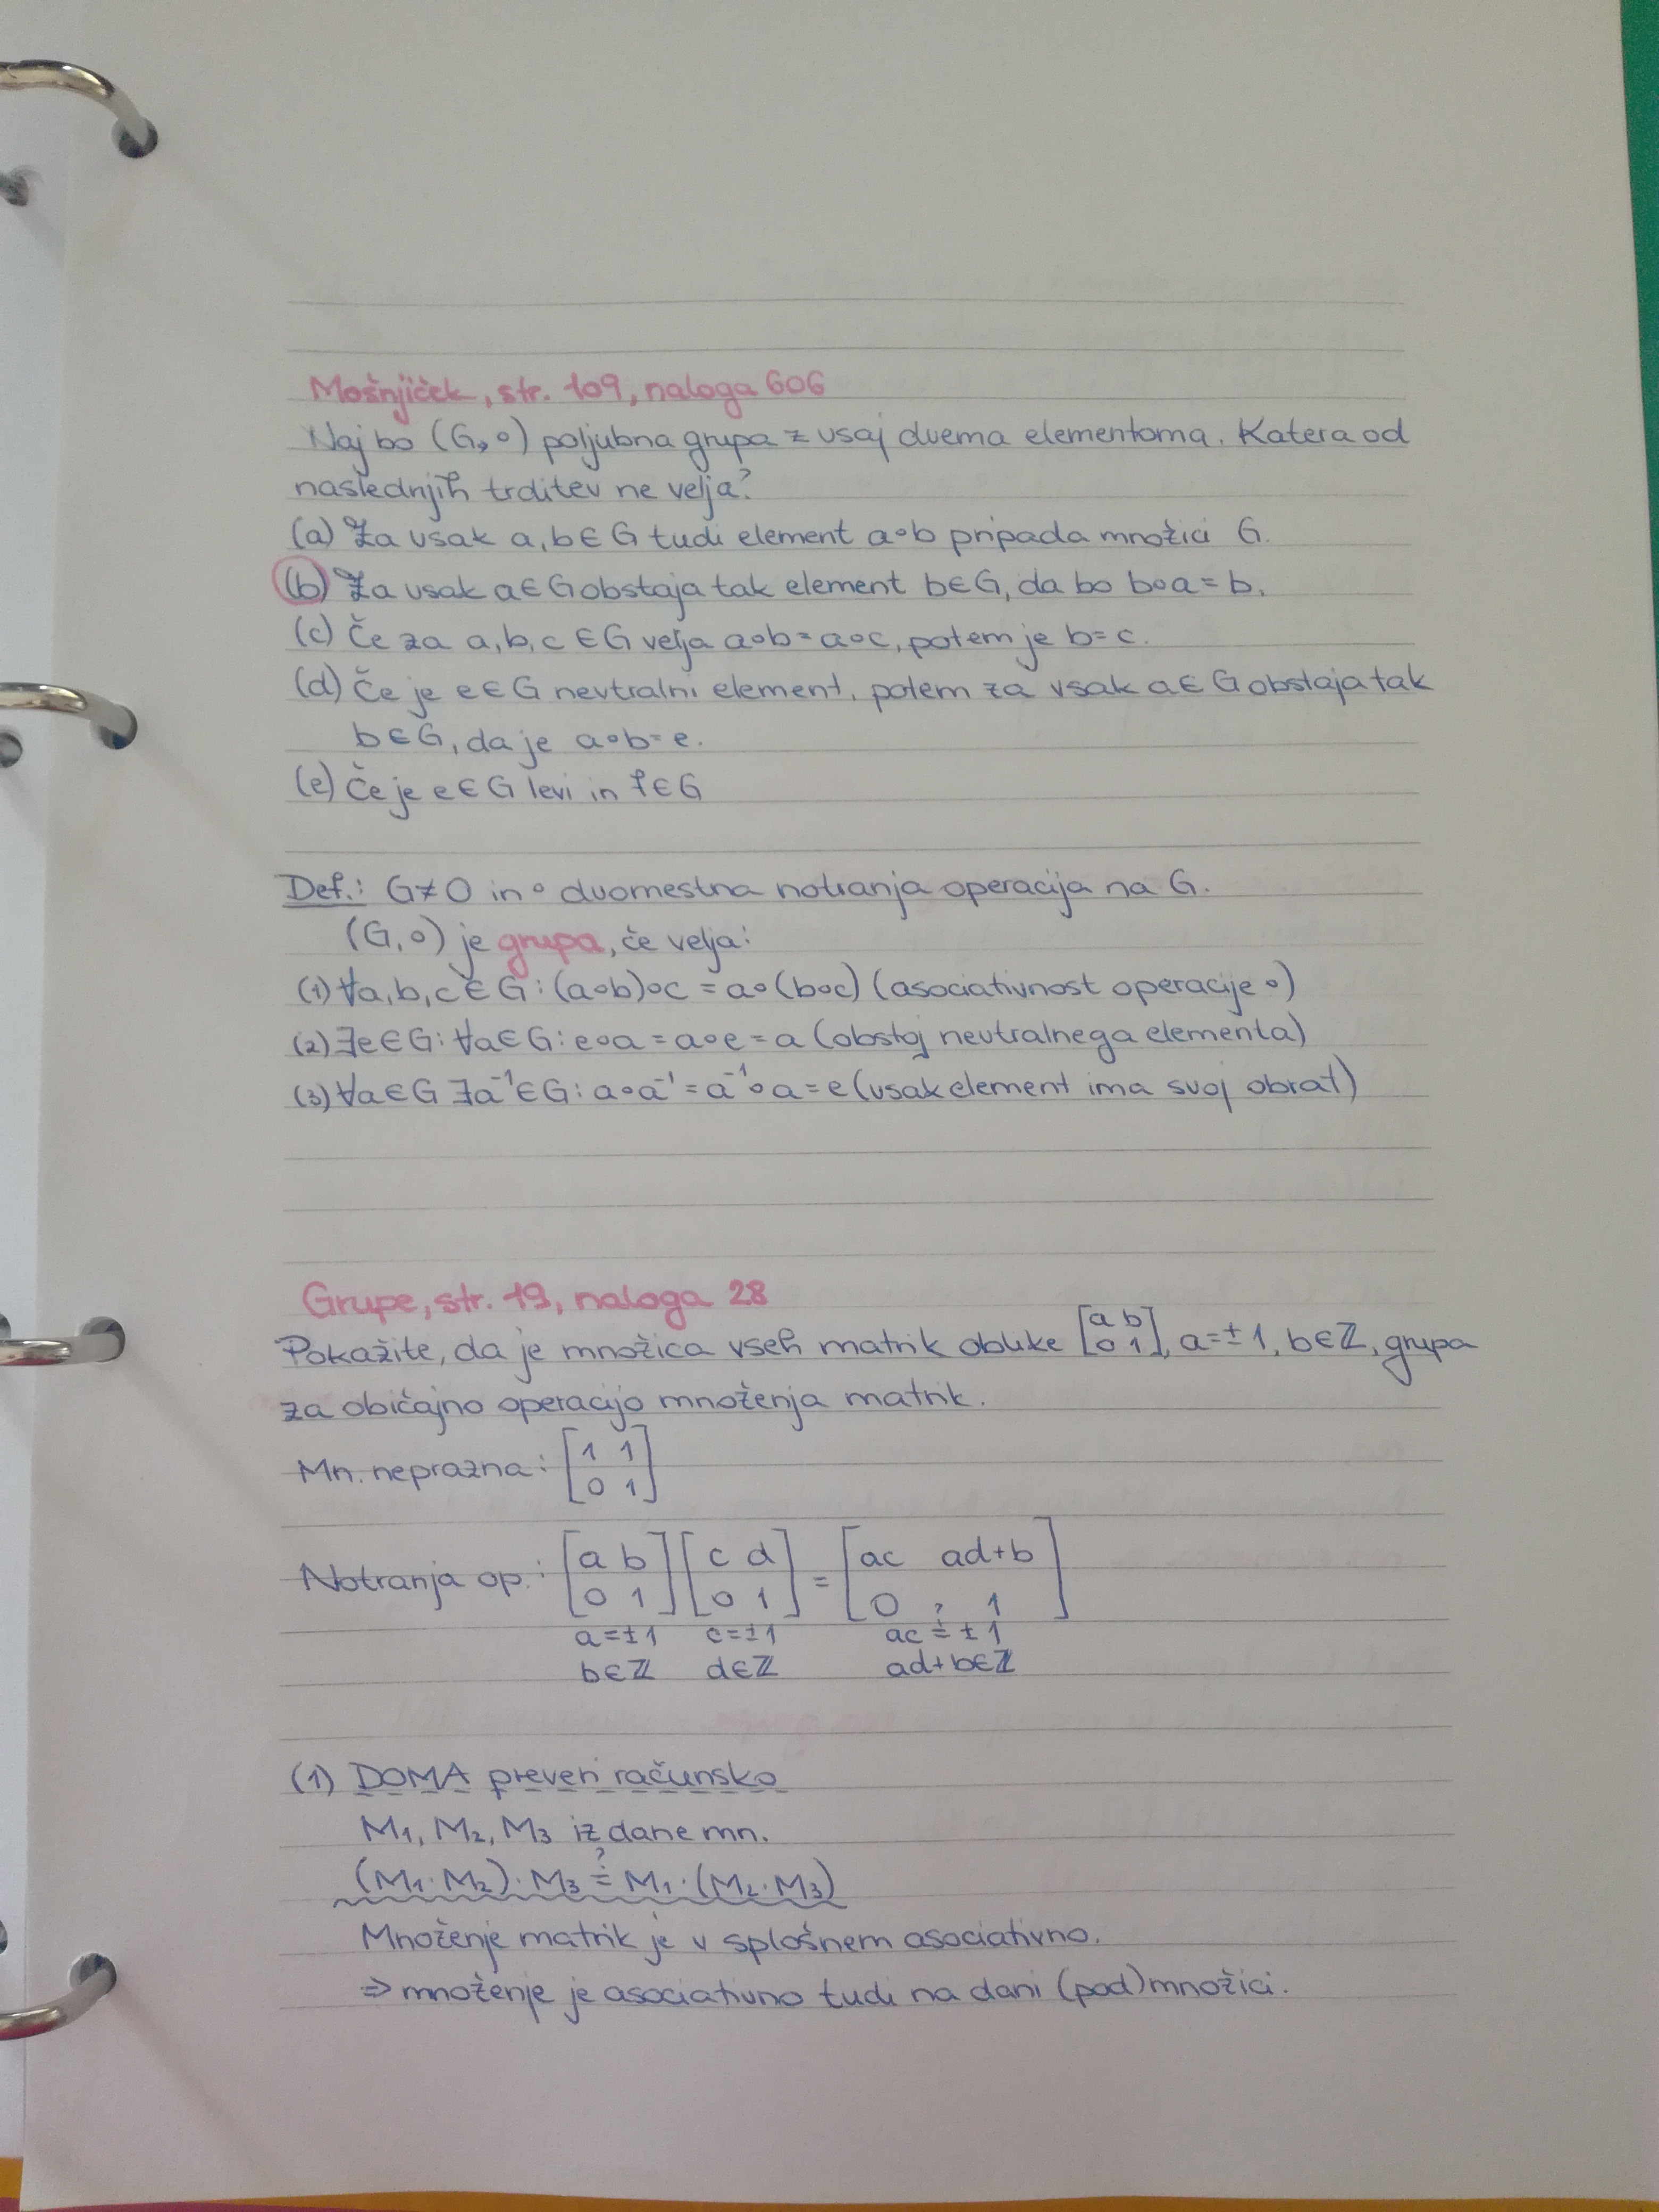 Mošnjiček, str. 109, naloga 606
Naj bo (G, ∘) poljubna grupa z vsaj dvema elementoma. Katera od
naslednjih trditev ne velja?
(a) Za vsak a, b ∈ G tudi element a∘b pripada množici G.
(b) Za vsak a ∈ G obstaja tak element b ∈ G, da bo b∘a = b.
(c) Če za a, b, c ∈ G velja a∘b = a∘c, potem je b = c.
(d) Če je e ∈ G nevtralni element, potem za vsak a ∈ G obstaja tak
b ∈ G, da je a∘b = e.
(e) Če je e ∈ G levi in f ∈ G
Def.: G ≠ O in ∘ dvomestna notranja operacija na G.
(G, ∘) je grupa, če velja:
(1) ∀a, b, c ∈ G : (a∘b)∘c = a∘(b∘c) (asociativnost operacije ∘)
(2) ∃e ∈ G : ∀a ∈ G : e∘a = a∘e = a (obstoj nevtralnega elementa)
(3) ∀a ∈ G ∃a⁻¹ ∈ G : a∘a⁻¹ = a⁻¹∘a = e (vsak element ima svoj obrat)
Grupe, str. 19, naloga 28
Pokažite, da je množica vseh matrik oblike [a b; 0 1], a = ±1, b ∈ ℤ, grupa
za običajno operacijo množenja matrik.
Mn. neprazna : [1 1; 0 1]
Notranja op. : [a b; 0 1] [c d; 0 1] = [ac ad+b; 0 1]
a = ±1 c = ±1 ac ≟ ±1
b ∈ ℤ d ∈ ℤ ad+b ∈ ℤ
(1) DOMA preveri računsko
M₁, M₂, M₃ iz dane mn.
(M₁·M₂)·M₃ ≟ M₁·(M₂·M₃)
Množenje matrik je v splošnem asociativno.
⇒ množenje je asociativno tudi na dani (pod)množici.